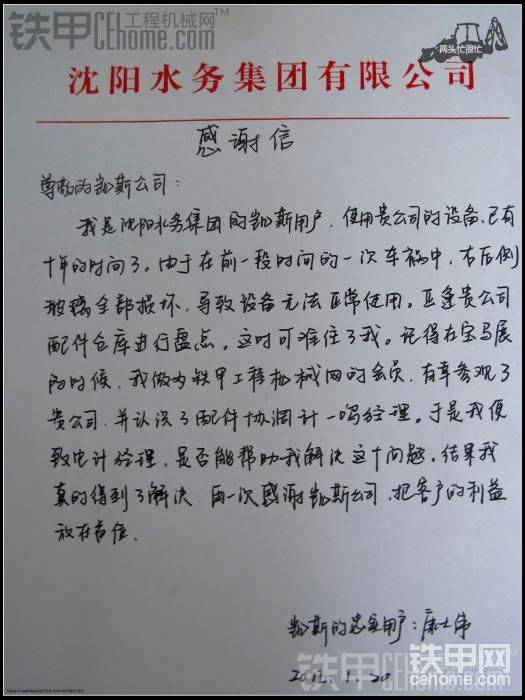 铁甲 工程机械网
CEhome.com
两头忙很忙
沈阳水务集团有限公司
感谢信
尊敬的凯斯公司:
我是沈阳水务集团的凯斯用户,使用贵公司的设备,已有
十年的时间了。由于在前一段时间的一次车祸中,右后侧
玻璃全部损坏,导致设备无法正常使用。正逢贵公司
配件仓库进行盘点。这时可难住了我。记得在宝马展
的时候,我做为铁甲工程机械网的会员,有幸参观了
贵公司,并认识了配件协调计一鸣经理。于是我便
致电计经理,是否能帮助我解决这个问题。结果我
真的得到了解决,再一次感谢凯斯公司,把客户的利益
放在首位。
凯斯的忠实用户:康
1.20
铁甲 工程机械网
CEhome.com
铁甲网
cehome.com